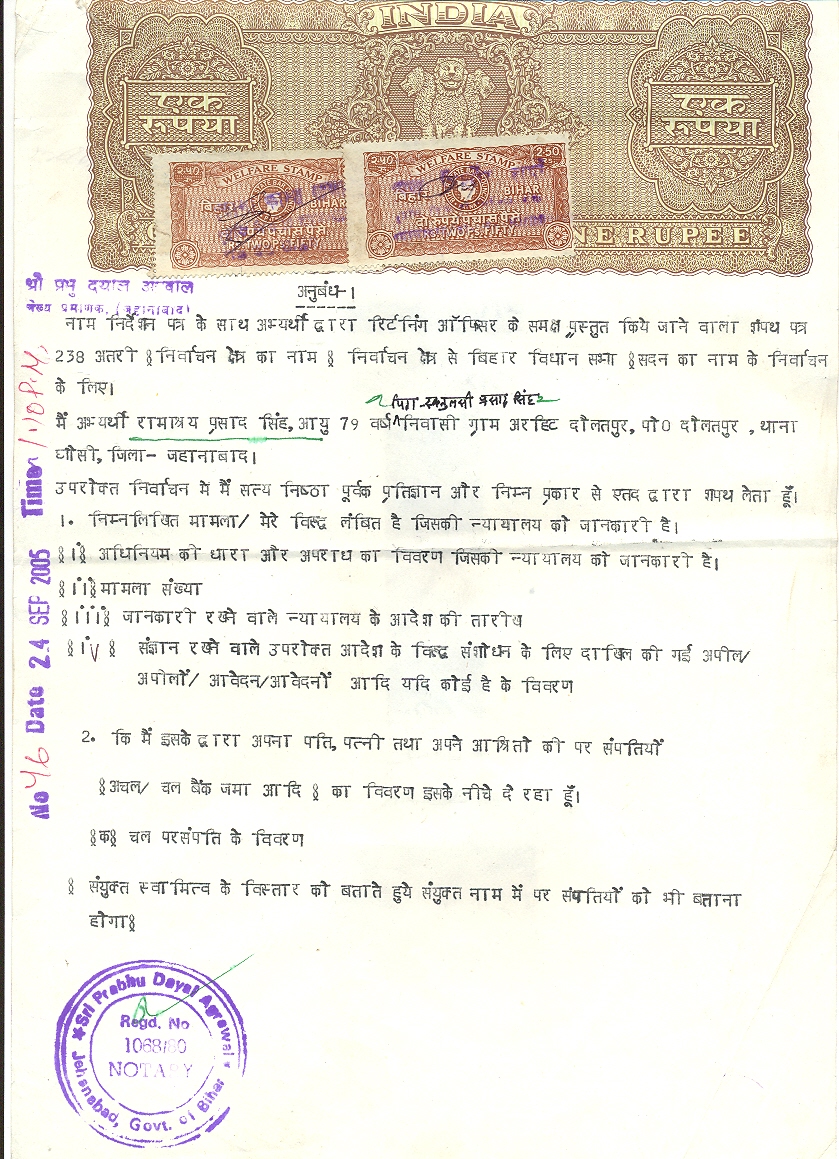 INDIA
एक
रूपया
एक
रूपया
२५० WELFARE STAMP
बिहार BIHAR
दो रूपये पचास पैसे
RS.TWO PS. FIFTY
२५० WELFARE STAMP 2.50
बिहार BIHAR
दो रूपये पचास पैसे
RS.TWO PS. FIFTY
NE RUPEE
श्री प्रभु दयाल अग्रवाल
लेख्य प्रमाणक, (जहानाबाद)
अनुबंध-1
नाम निर्देशन पत्र के साथ अभ्यर्थी द्वारा रिटर्निंग ऑफिसर के समक्ष प्रस्तुत किये जाने वाला शपथ पत्र
238 अतरी §निर्वाचन क्षेत्र का नाम § निर्वाचन क्षेत्र से बिहार विधान सभा §सदन का नाम के निर्वाचन
के लिए।
पिता- प्रसाद सिंह
मैं अभ्यर्थी रामाश्रय प्रसाद सिंह, आयु 79 वर्ष निवासी ग्राम अरहिट दौलतपुर, पो0 दौलतपुर , थाना
घोसी, जिला- जहानाबाद।
उपरोक्त निर्वाचन में मैं सत्य निष्ठा पूर्वक प्रतिज्ञान और निम्न प्रकार से एतद द्वारा शपथ लेता हूँ।
1. निम्नलिखित मामला/ मेरे विरूद्ध लंबित है जिसकी न्यायालय को जानकारी है।
§i§ अधिनियम की धारा और अपराध का विवरण जिसकी न्यायालय को जानकारी है।
§ii§ मामला संख्या
§iii§ जानकारी रखने वाले न्यायालय के आदेश की तारीख
§iv § संज्ञान रखने वाले उपरोक्त आदेश के विरूद्ध संशोधन के लिए दाखिल की गई अपील/
अपीलों/ आवेदन/आवेदनों आदि यदि कोई है के विवरण
2. कि मैं इसके द्वारा अपना पति, पत्नी तथा अपने आश्रितों की पर संपतियों
§अचल/ चल बैंक जमा आदि § का विवरण इसके नीचे दे रहा हूँ।
§क§ चल परसंपति के विवरण
§ संयुक्त स्वामित्व के विस्तार को बताते हुये संयुक्त नाम में पर संपतियों को भी बताना
होगा§
No 46 Date 24 SEP 2005 Time 1:10 P.M.
Sri Prabhu Dayal Agrawal
Regd. No
1068/80
NOTARY
Jehanabad, Govt. of Bihar